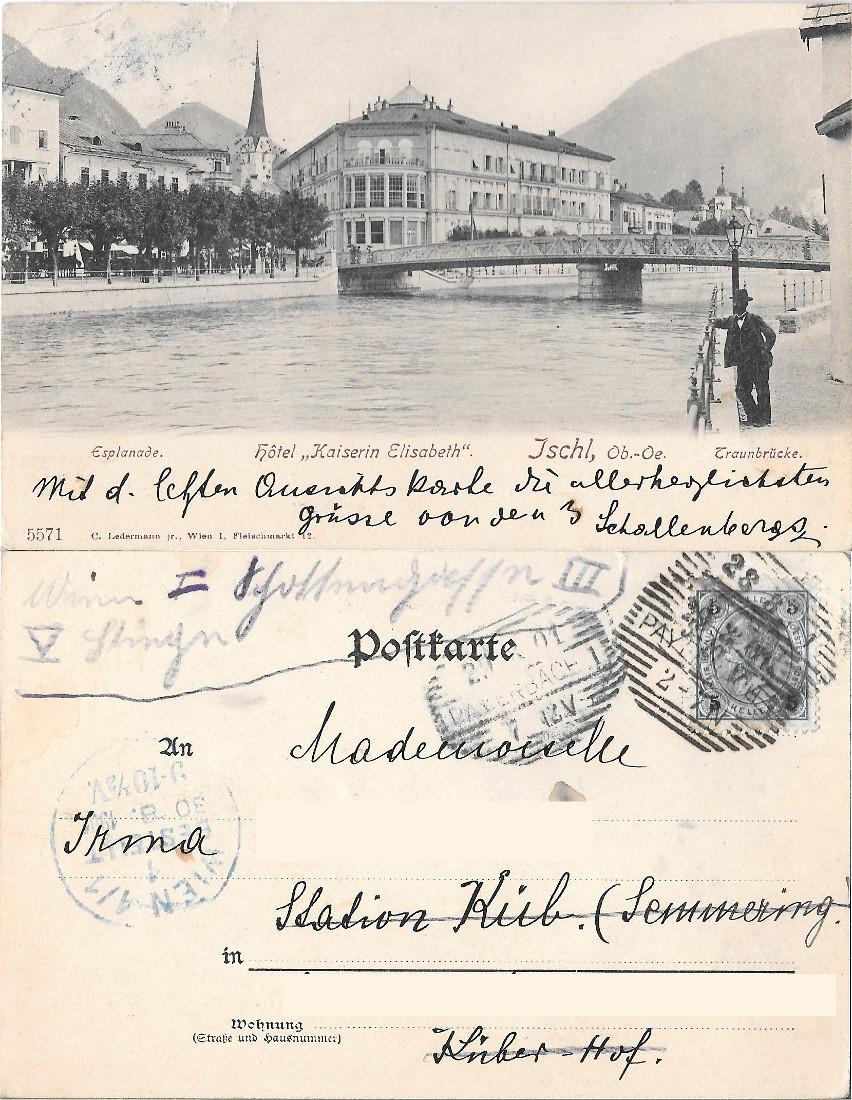 Esplanade. Hôtel „Kaiserin Elisabeth“. Ischl, Ob.-Oe. Traunbrücke.
Mit d. letzten Ansichtskarte die allerherzlichsten
Grüsse von den 3 Schallenbergs.
5571 C. Ledermann jr., Wien I, Fleischmarkt 12.
Wien I Schottengasse III
V Stiege
Postkarte
PAYERBACH
An Mademoiselle
WIEN 1/1
BESTELLT
30 8.
9-10½V.
Irma
Station Küb. (Semmering.
in
Wohnung
(Straße und Hausnummer)
Küber-Hof.